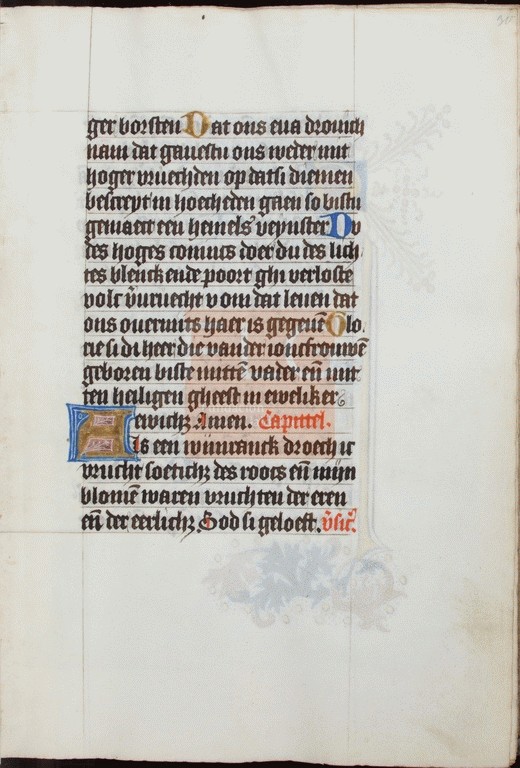 ger borsten Dat ons eua drouich
nam dat gauestu ons weder mit
hoger vruechden op datsi die nien
bescreyt in hoecheden gaen so bistu
gemaect een hemels veynster Du
des hoges conincs doer du des lich
tes blenckende poort ghi verloste
volc v̄uruecht v om dat leuen dat
ons ouermits haer is gegeuē Glo
rie si di heer die van der ioncfrouwen
geboren biste mittē vader eñ mit
ten heiligen gheest in eweliker
ewichꝫ Amen. Capittel.
Als een wijnranck droech ic
vrucht soetichꝫ des roocs eñ mijn
blomē waren vruchten der eren
eñ der eerlichꝫ. God si geloeft. v̄sic'.